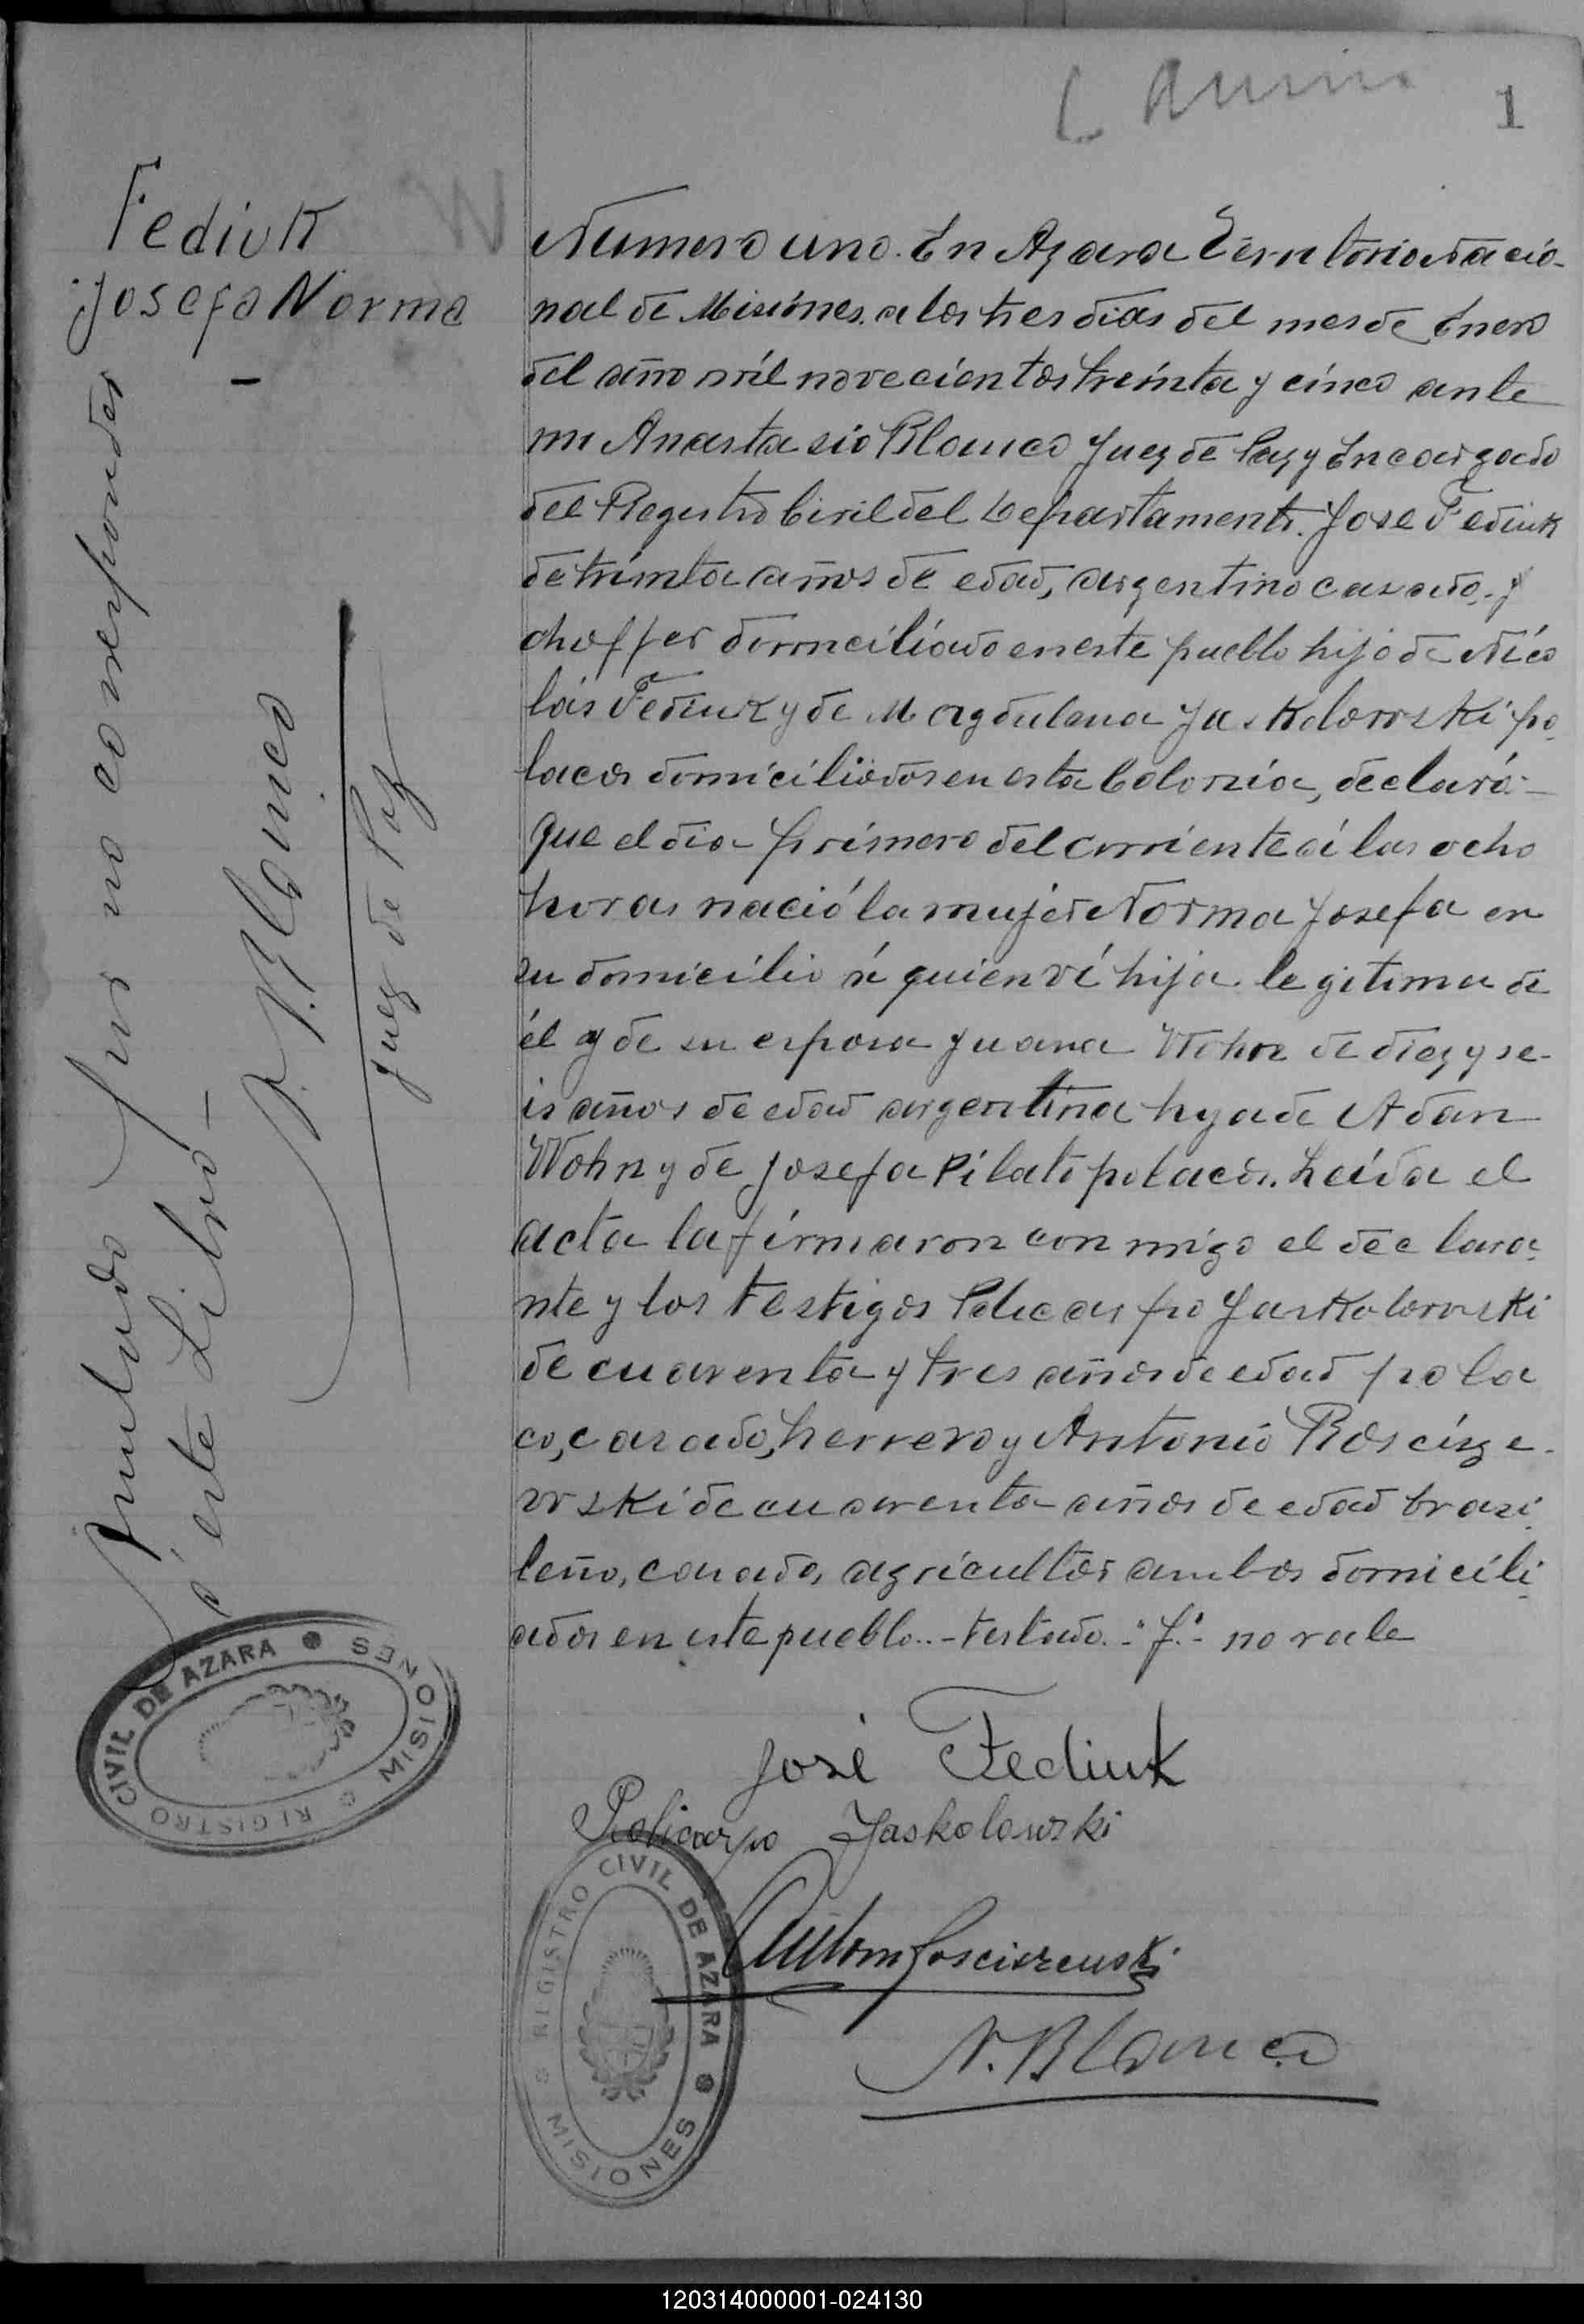 1
Fediuk
Josefa Norma
Anulado por no corresponder
a este Libro
A. Blanco
Juez de Paz
Numero uno. En Azara Territorio Nacio-
nal de Misiones, a los tres dias del mes de Enero
del año mil novecientos treinta y cinco ante
mi Anastasio Blanco Juez de Paz y Encargado
del Registro Civil del Departamento. Jose Fediuk
de treinta años de edad, argentino casado. y
choffer domiciliado en este pueblo hijo de Nico
lás Fediuk y de Magdalena Jaskolowski po
lacos domiciliados en esta Colonia, declaró-
que el dia primero del corriente á las ocho
horas nació la mujer Norma Josefa en
su domicilio á quien ví hija legitima de
él y de su esposa Juana Wohn de diez y se-
is años de edad argentina hija de Adan
Wohn y de Josefa Pilati polacos. Leida el
acta la firmaron con migo el declara-
nte y los testigos Policarpo Jaskolowski
de cuarenta y tres años de edad pola
co, casado, herrero y Antonio Roscisze-
wski de cuarenta años de edad brasi
leño, casado, agricultor ambos domicili
ados en este pueblo..-testado.-"y."- no vale
José Fediuk
Policarpo Jaskolowski
A. Blanco
REGISTRO CIVIL DE AZARA
MISIONES
REGISTRO CIVIL DE AZARA
MISIONES
120314000001-024130